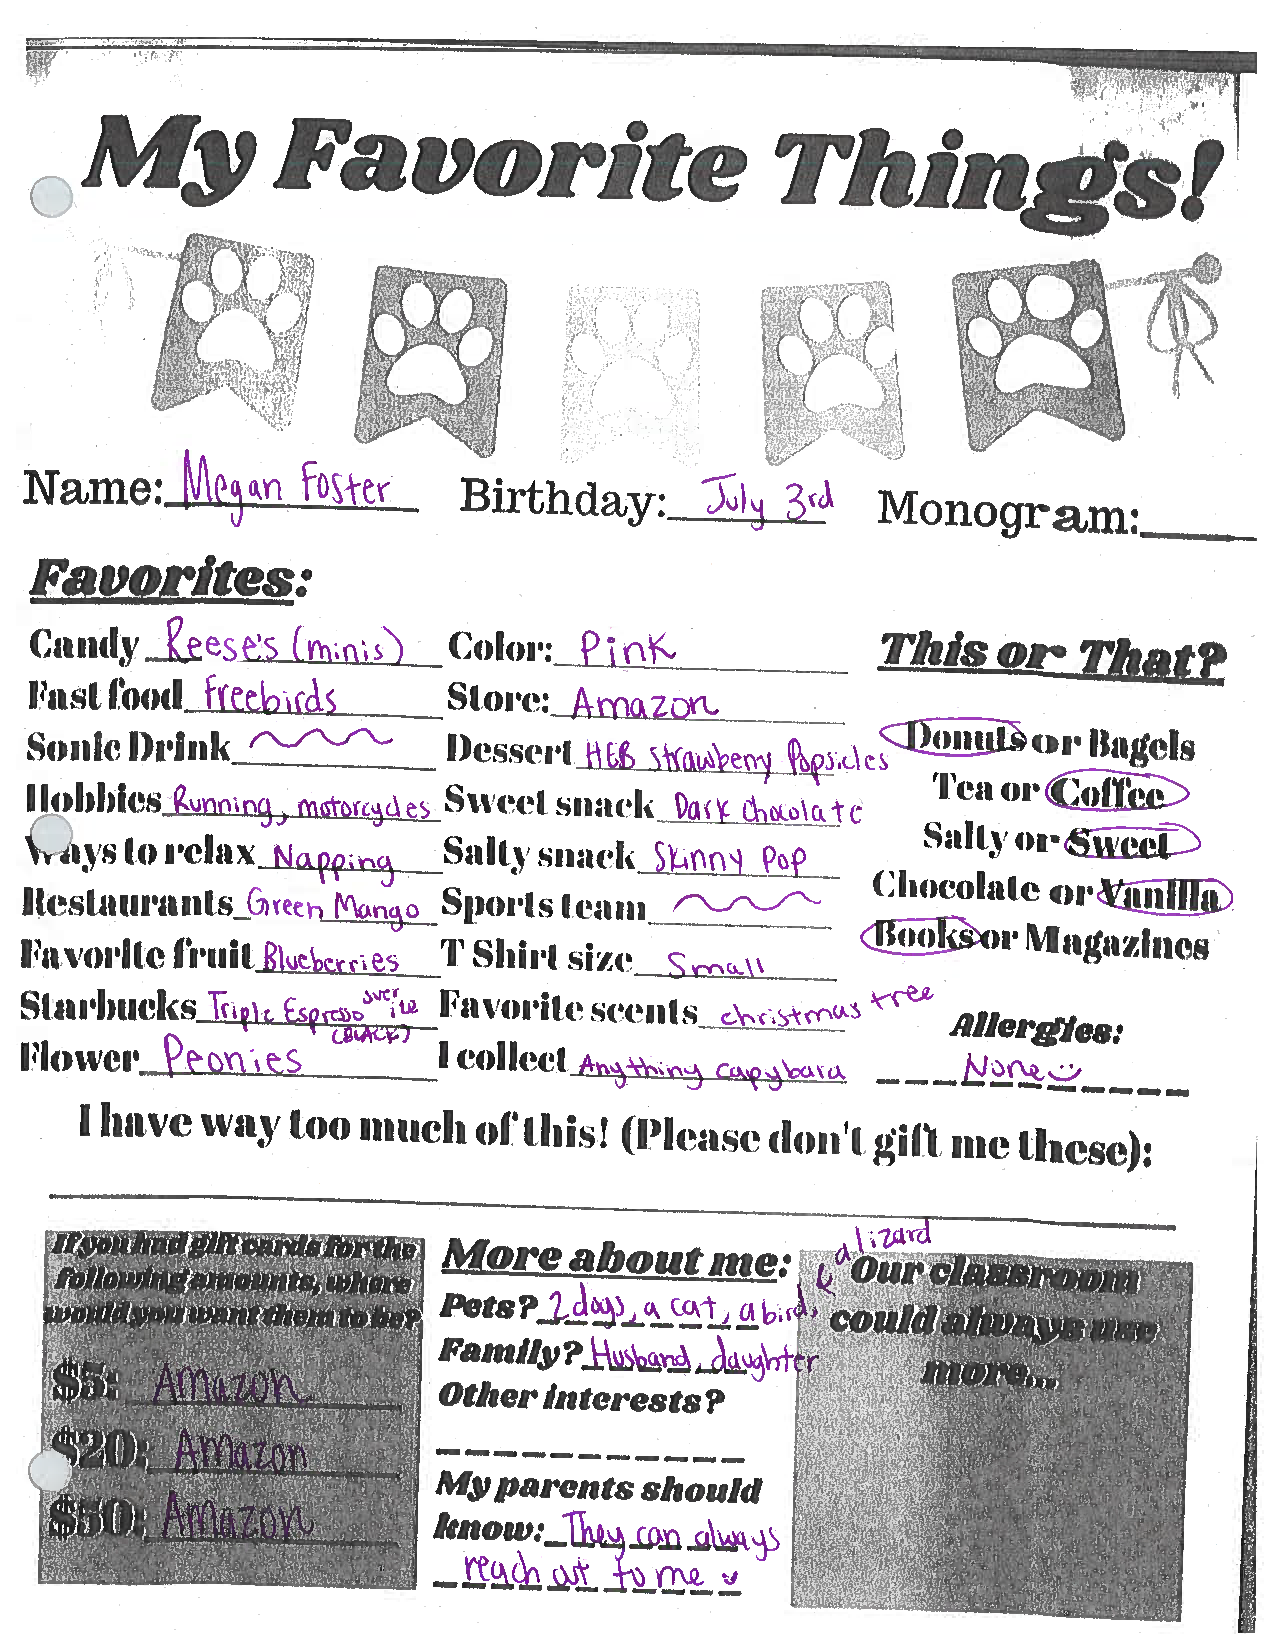 My Favorite Things!
Name: Megan Foster Birthday: July 3rd Monogram:
Favorites:
Candy Reese's (minis) Color: Pink
Fast food Freebirds Store: Amazon
Sonic Drink Dessert HEB Strawberry Popsicles
Hobbies Running, motorcycles Sweet snack Dark Chocolate
Ways to relax Napping Salty snack Skinny Pop
Restaurants Green Mango Sports team
Favorite fruit Blueberries T Shirt size Small
Starbucks Triple Espresso over ice (BLACK) Favorite scents christmas tree
Flower Peonies I collect Anything capybara
This or That?
Donuts or Bagels
Tea or Coffee
Salty or Sweet
Chocolate or Vanilla
Books or Magazines
Allergies:
None
I have way too much of this! (Please don't gift me these):
If you had gift cards for the
following amounts, where
would you want them to be?
$5: Amazon
$20: Amazon
$50: Amazon
More about me:
Pets? 2 dogs, a cat, a bird, a lizard
Family? Husband, daughter
Other interests?
My parents should
know: They can always
reach out to me
Our classroom
could always use
more...